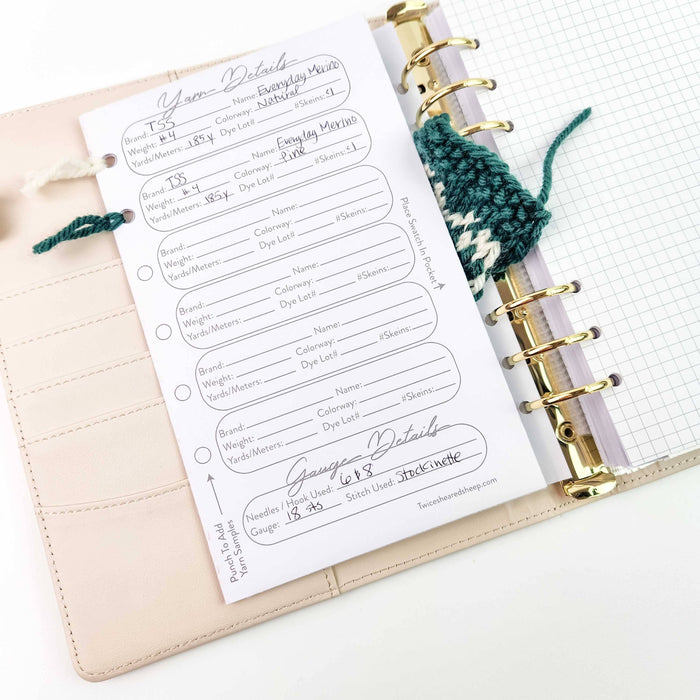 Yarn Details
Brand: TSS Name: Everyday Merino
Weight: #4 Colorway: Natural
Yards/Meters: 185y Dye Lot# #Skeins: 1
Brand: TSS Name: Everyday Merino
Weight: #4 Colorway: Pine
Yards/Meters: 185y Dye Lot# #Skeins: 1
Brand: Name:
Weight: Colorway:
Yards/Meters: Dye Lot# #Skeins:
Brand: Name:
Weight: Colorway:
Yards/Meters: Dye Lot# #Skeins:
Brand: Name:
Weight: Colorway:
Yards/Meters: Dye Lot# #Skeins:
Brand: Name:
Weight: Colorway:
Yards/Meters: Dye Lot# #Skeins:
Place Swatch In Pocket
Gauge Details
Needles / Hook Used: 6 & 8
Gauge: 18 sts Stitch Used: Stockinette
Twiceshearedsheep.com
Punch To Add
Yarn Samples